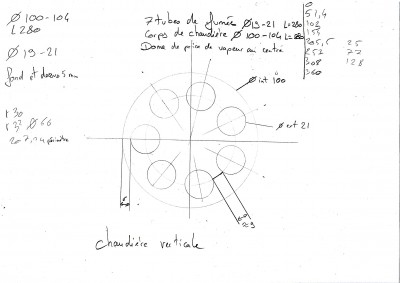 Ø 100-104
L 280
Ø 19-21
fond et dessus 5 mm
r 30
r 33 Ø 66
7 tubes de fumée Ø 19-21 L=280
Corps de chaudière Ø 100-104 L=280
Dome de prise de vapeur au centre
0
51,4
102
155
205,5 25
257 77
308 128
360
Ø int 100
Ø ext 21
chaudière verticale